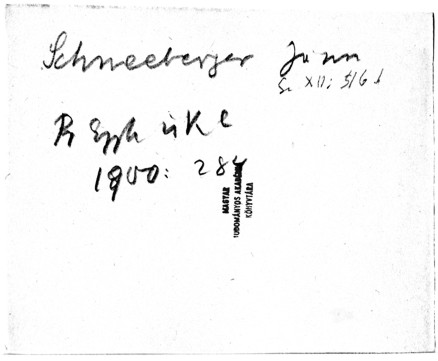 Schneeberger János
Sz XII; 5/6 d
Pr Egyh isk l
1900: 284
MAGYAR
TUDOMÁNYOS AKADÉMIA
KÖNYVTÁRA